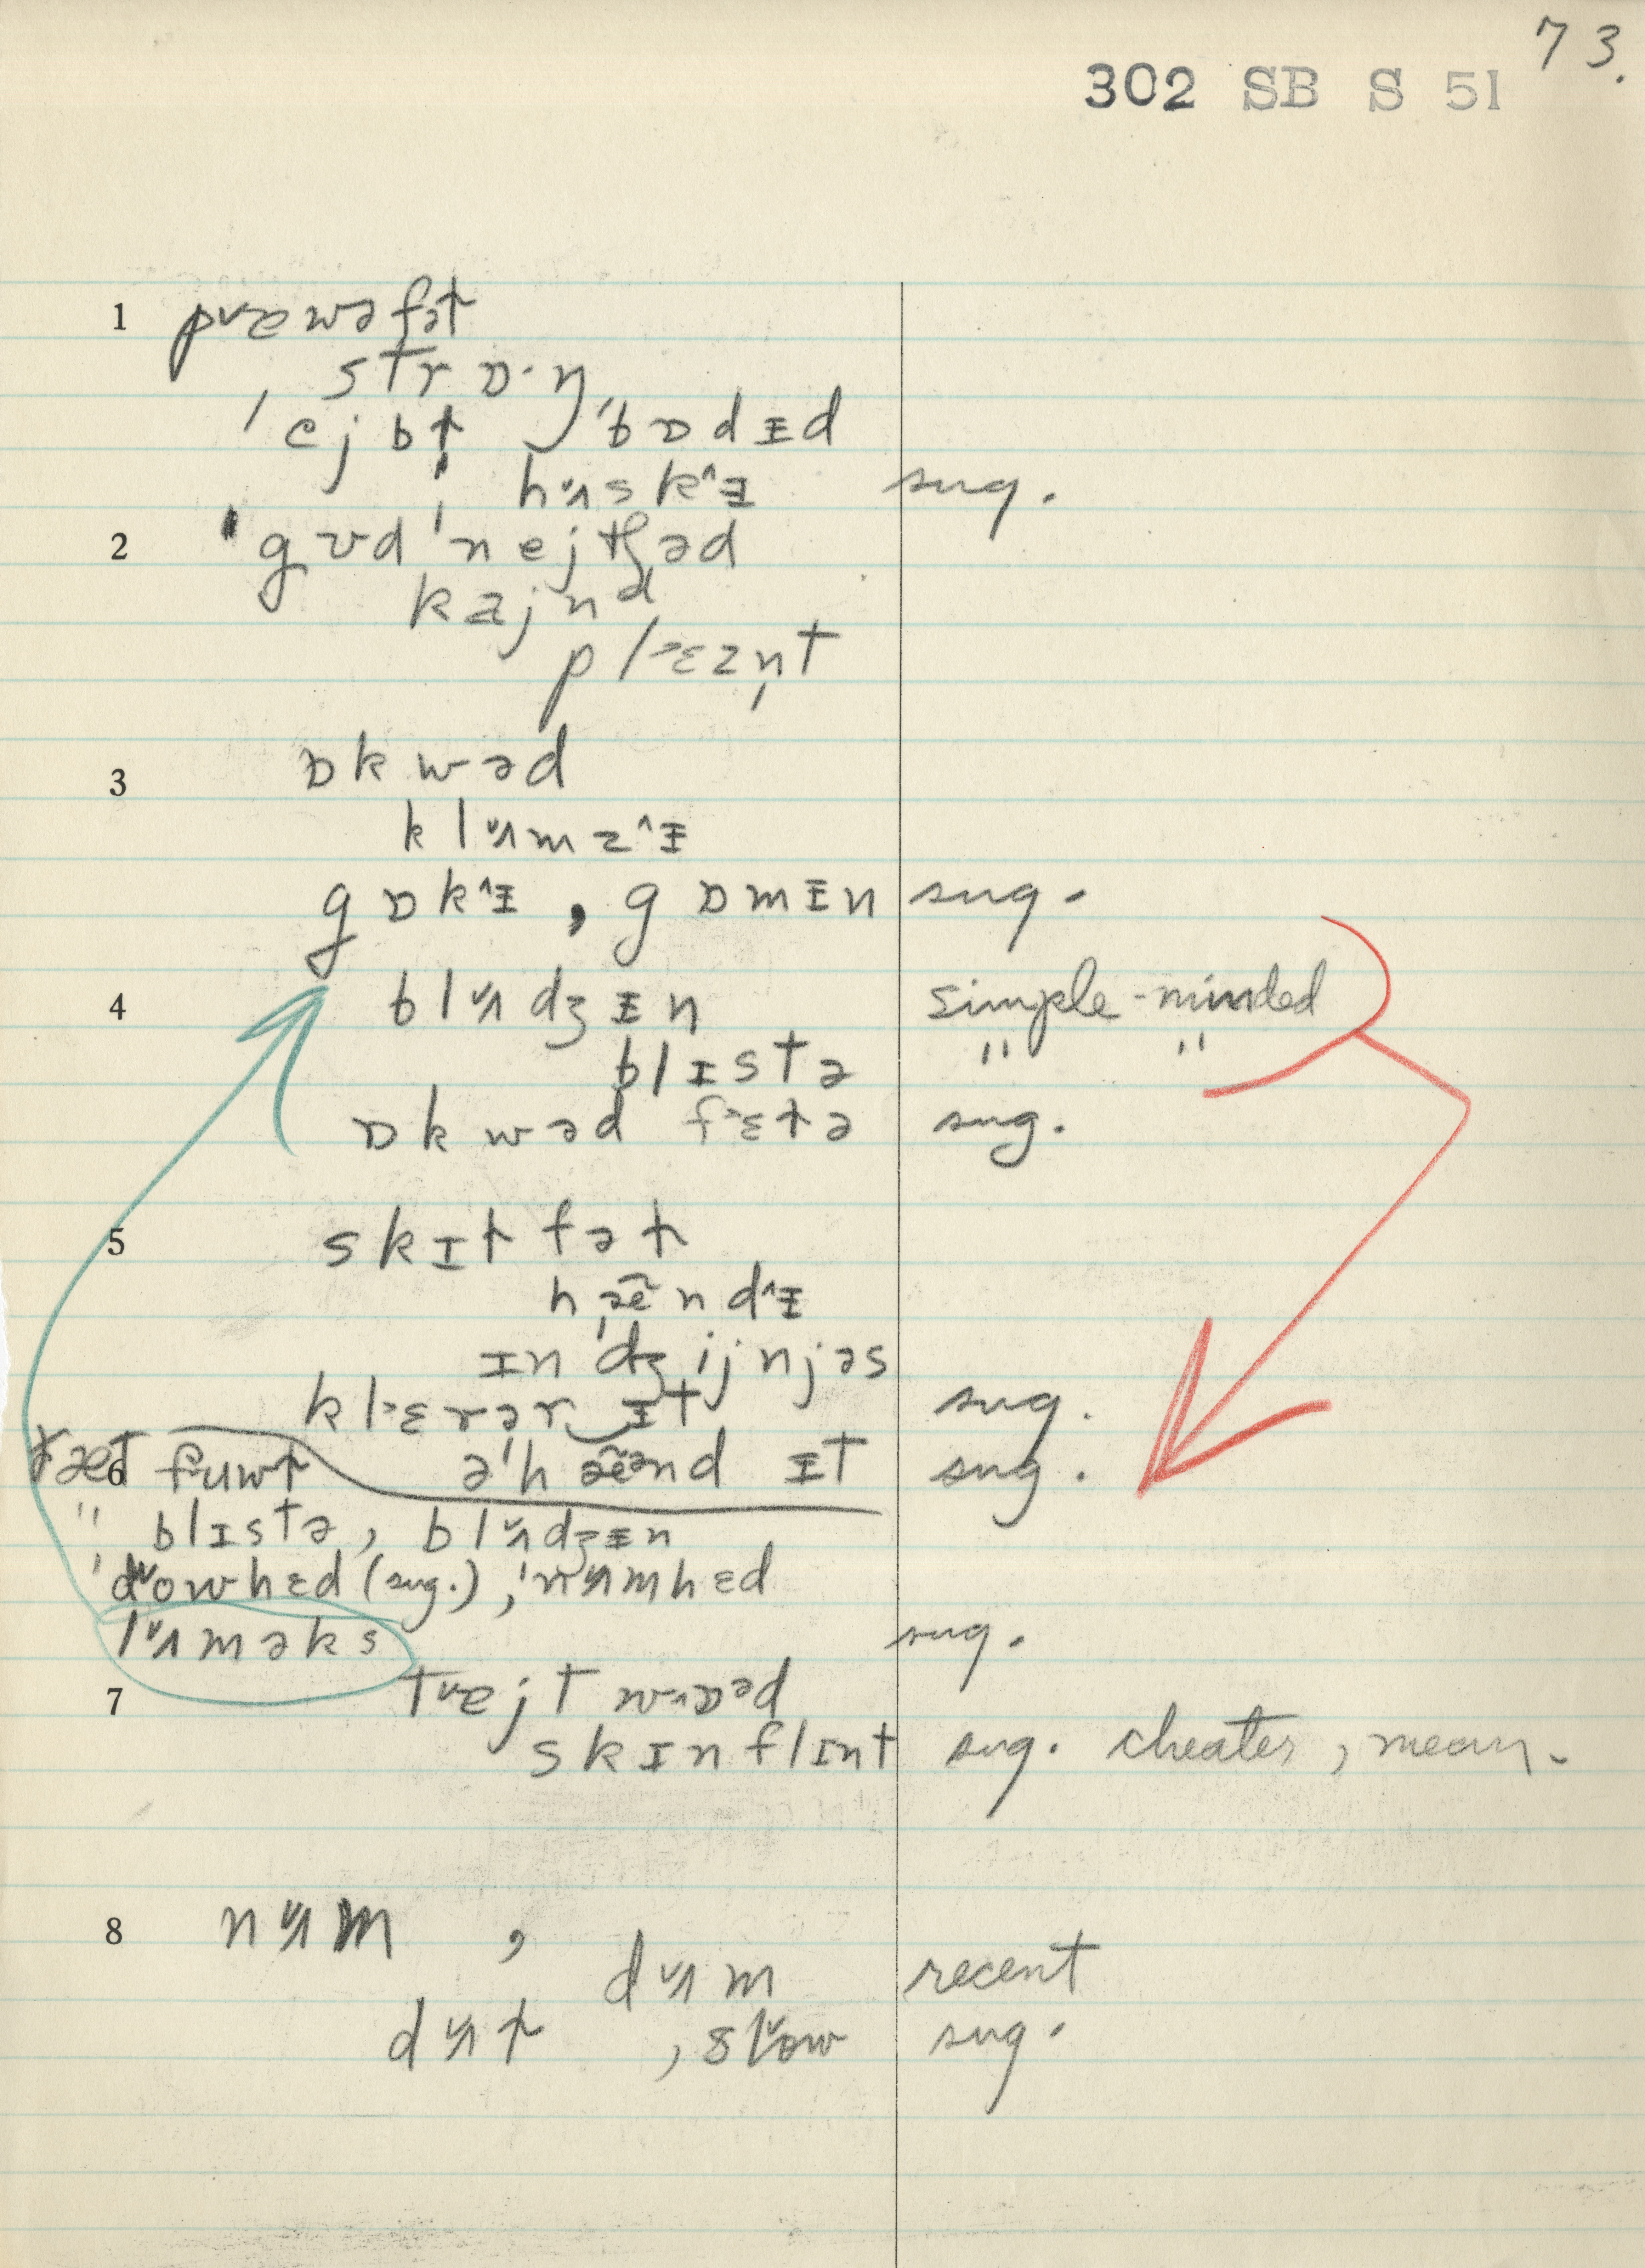 73.
302 SB S 51
1 pɐwəfət
strɒ·ŋ
ˈejbt̩ ˈbɒdɪd
hʌskɪ sug.
2 ˈgʊdˈnejtʃəd
kajnd
plɛzn̩t
3 ɒkwəd
klʌmzɪ
gɒkɪ, gɒmɪn sug.
4 blʌdʒɪn simple-minded
blɪstə " "
ɒkwəd fɛtə sug.
5 skɪtfət
hæ̃ndɪ
ɪnˈdʒijnjəs
klɛrər ɪt sug.
6 fuwt əˈhæ̃nd ɪt sug.
" blɪstə, blʌdʒɪn
ˈdowhɛd (sug.), ˈnʌmhɛd
lʌməks sug.
7 tɐjt wɒəd
skɪnflɪnt sug. cheater, mean.
8 nʌm,
dʌm recent
dʌt, slow sug.